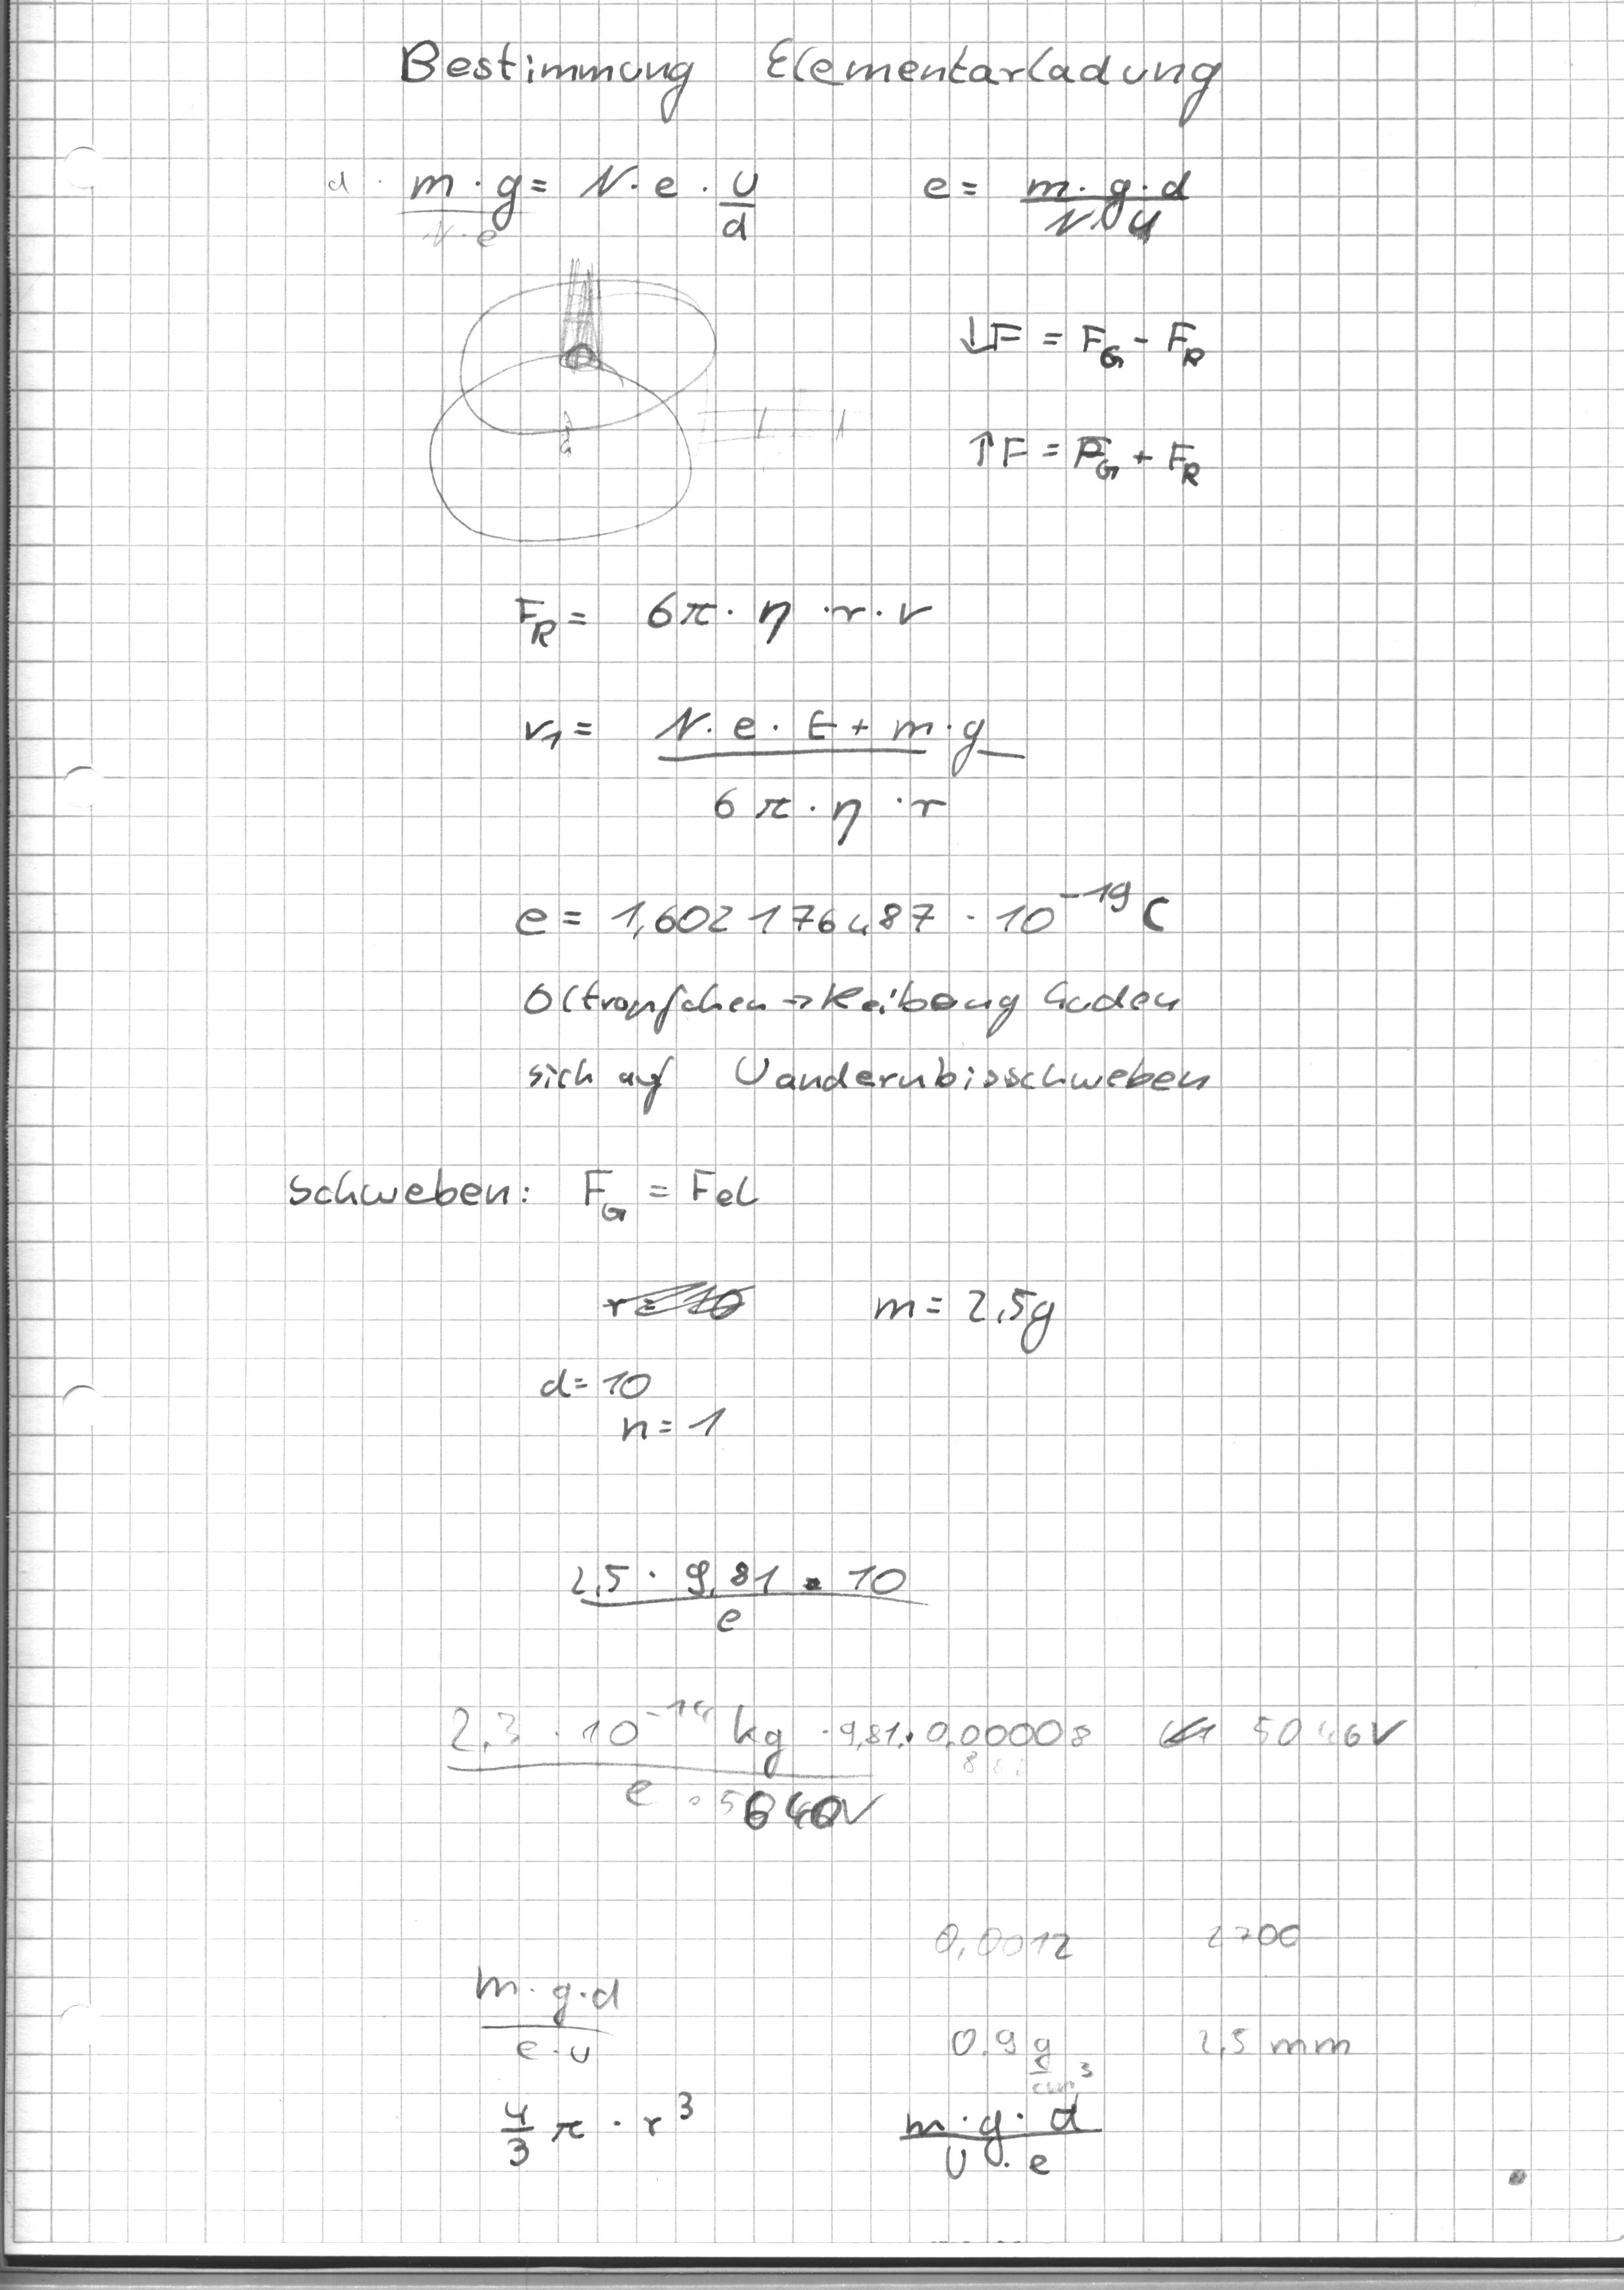 Bestimmung Elementarladung
d · m · g = N · e · U/d
N · e
e = m · g · d / N · U
↓F = F_G - F_R
↑F = F_G + F_R
F_R = 6π · η · r · v
v_1 = N · e · E + m · g / 6π · η · r
e = 1,602176487 · 10^-19 C
Öltröpfchen → Reibung laden
sich auf U andern bis schweben
Schweben: F_G = Fel
m = 2,5g
d = 10
n = 1
2,5 · 9,81 · 10 / e
2,3 · 10^-14 kg · 9,81 · 0,00008 5046V
0,0012 2700
m · g · d / e · U
0,9 g/cm^3 2,5 mm
4/3 π · r^3
m · g · d / U · e